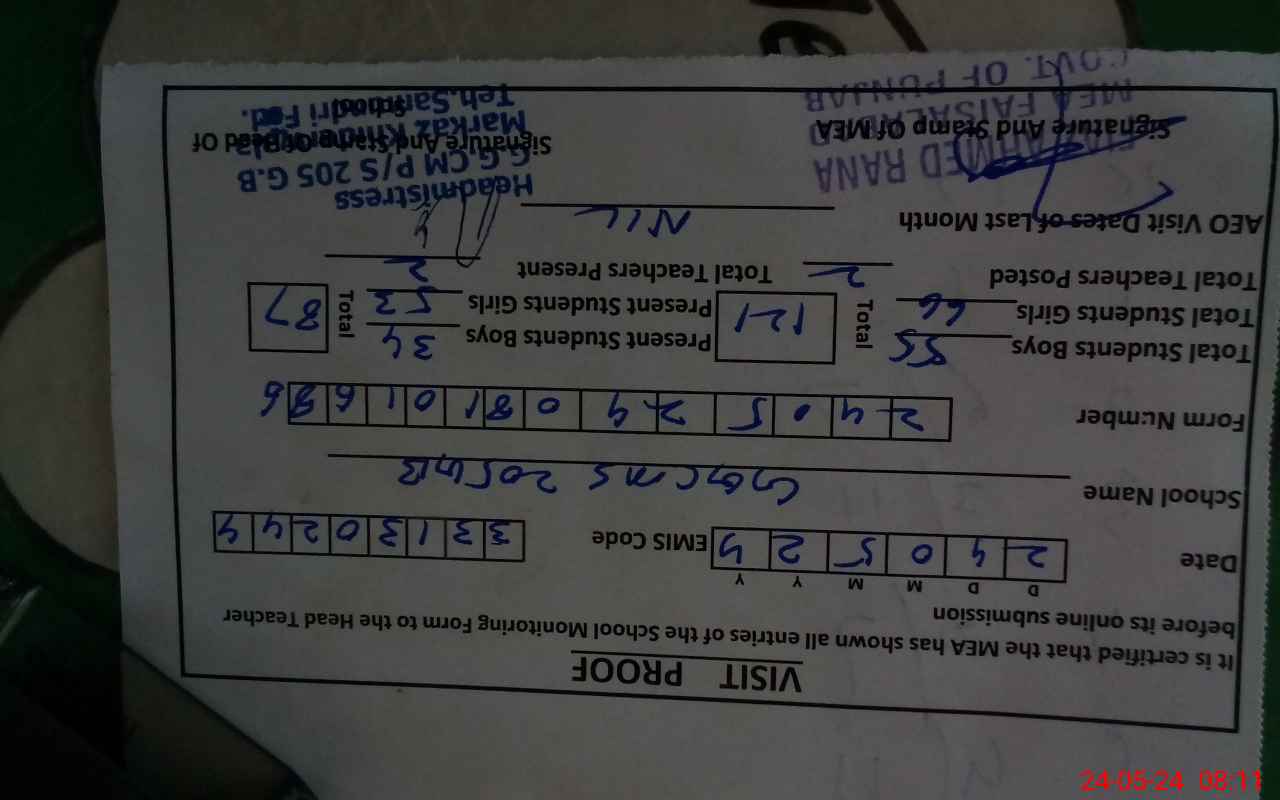 VISIT PROOF
It is certified that the MEA has shown all entries of the School Monitoring Form to the Head Teacher
before its online submission
D D M M Y Y
Date 2 4 0 5 2 4 EMIS Code 3 3 1 3 0 2 4 4
School Name GGCMS 205 GB
Form Number 2 4 0 5 2 4 0 8 1 0 1 6 8 6
Total Students Boys 55 Total 121 Present Students Boys 34 Total 87
Total Students Girls 66 Present Students Girls 53
Total Teachers Posted 2 Total Teachers Present 2
AEO Visit Dates of Last Month NIL
Headmistress
AHMED RANA G.G.CM P/S 205 G.B
Signature And Stamp Of MEA Signature And Stamp Of Head Of
MEA FAISALABAD Markaz
School
GOVT. OF PUNJAB Teh.Samundri Fsd.
24-05-24 08:11